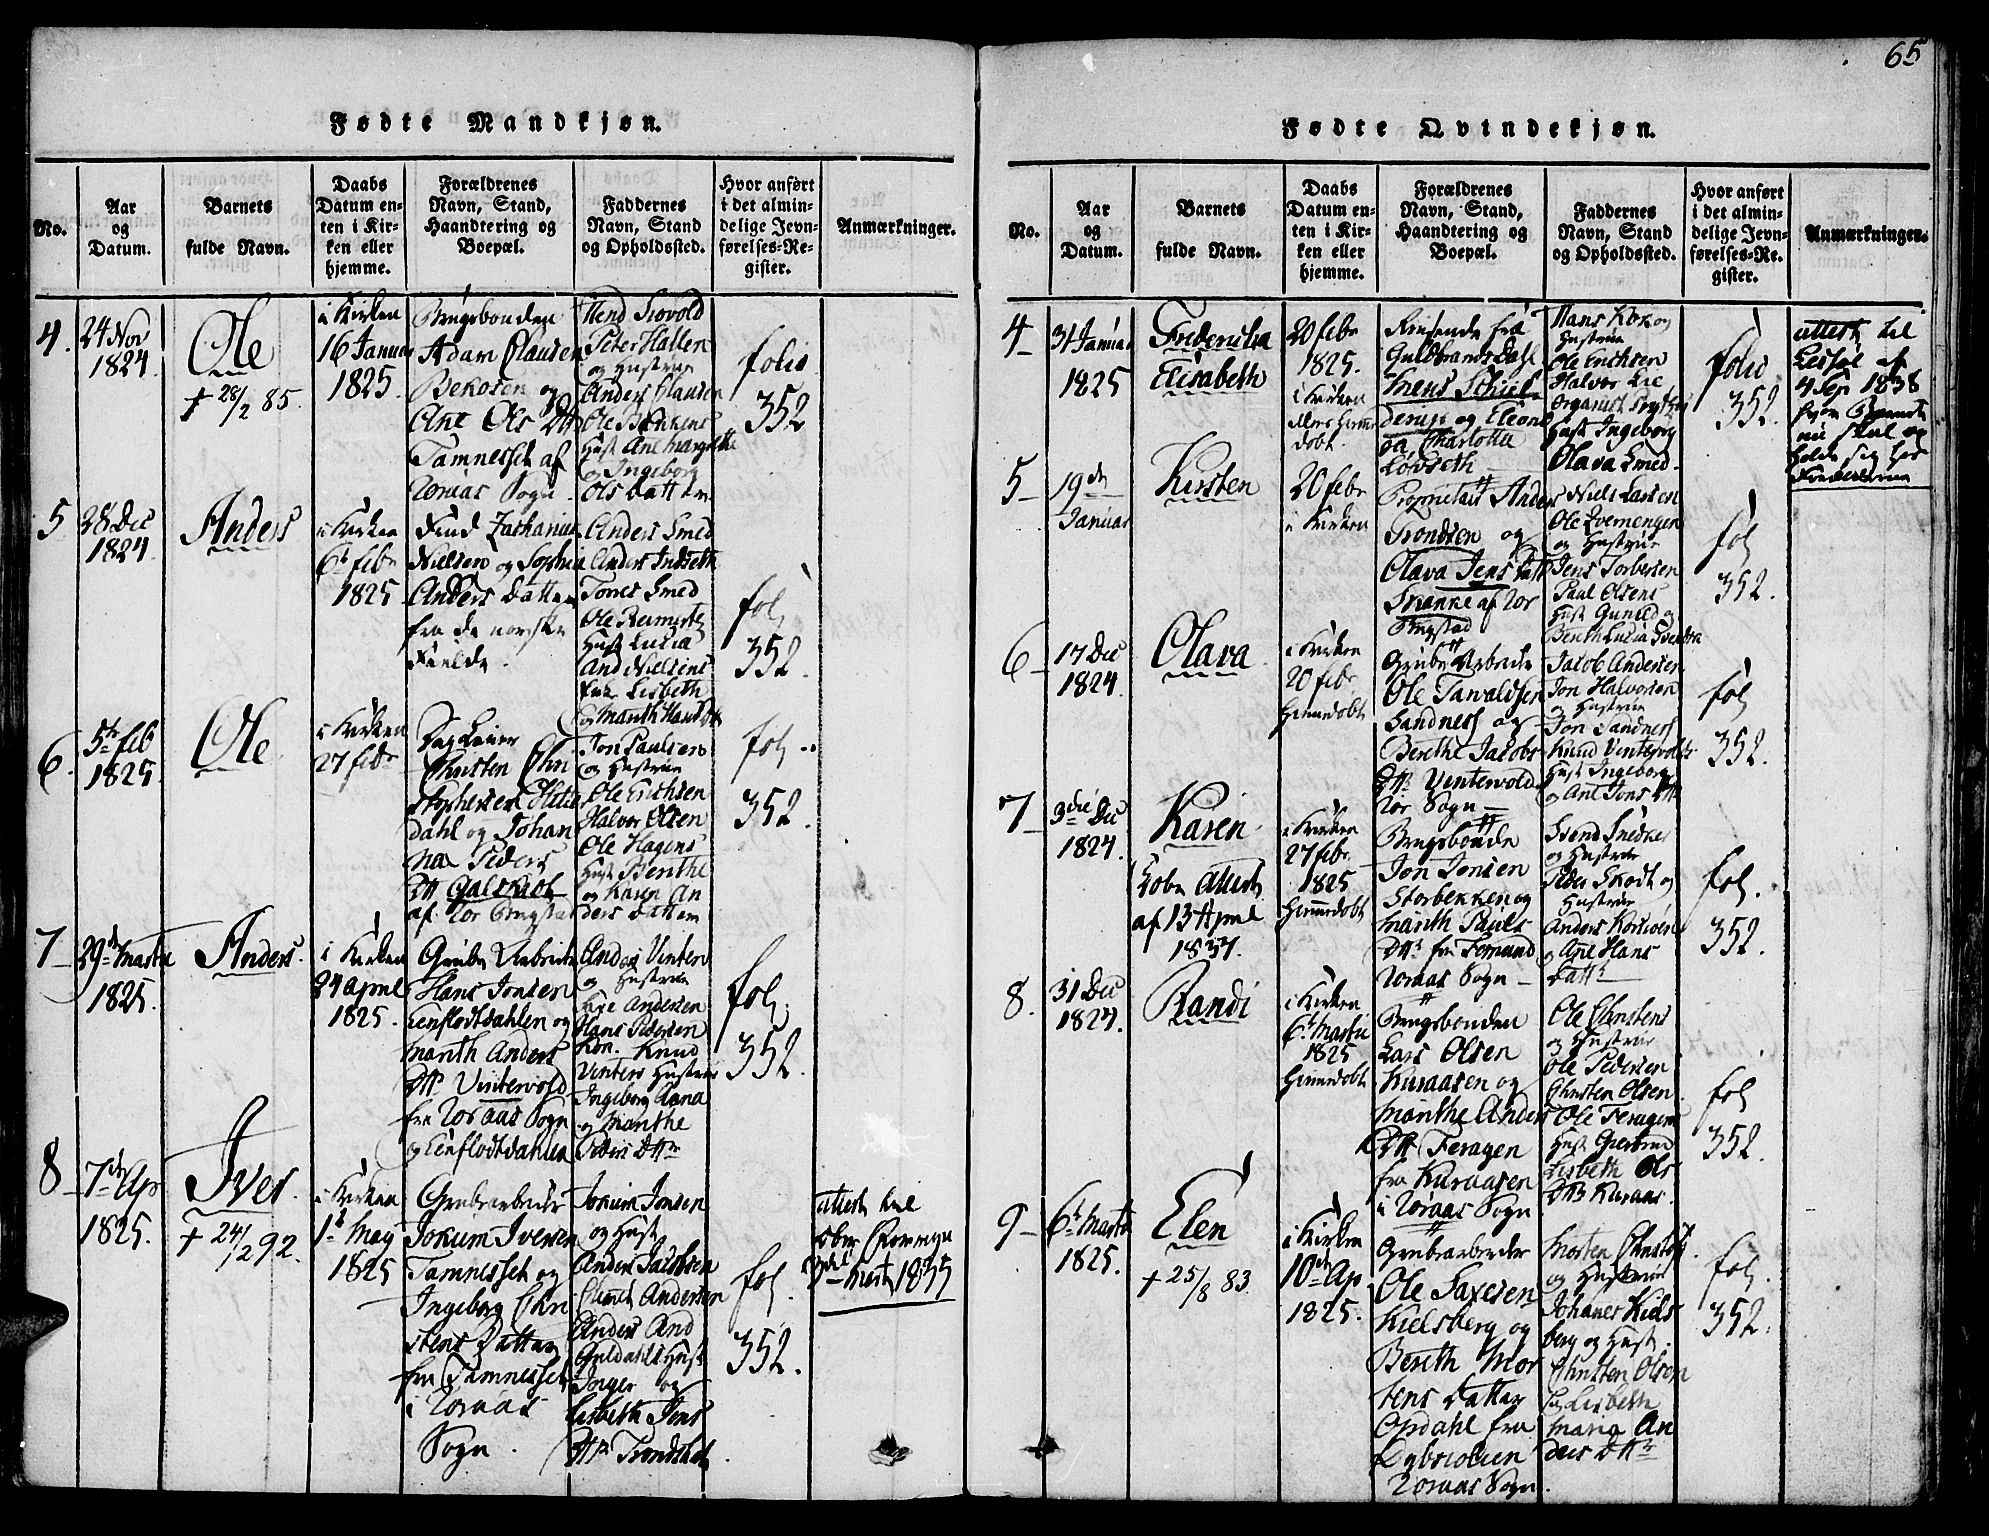 65
Fødte Mandkjøn.
No.
Aar
og
Datum.
Barnets
fulde Navn.
Daabs
Datum en-
ten i Kir-
ken eller
hjemme.
Forældrenes
Navn, Stand,
Haandtering og
Boepæl.
Faddernes
Navn, Stand
og Opholdssted.
Hvor anført
i det almin-
delige Jevn-
førelses-Re-
gister.
Anmærkninger.
4.
24 Nov
1824
Ole
+ 28/2 85.
i Kirken
16 Januar
1825
Brugsbonden
Adam Clausen
Bekosen og
Ane Ols Dtt
Tamnesset af
Roraas Sogn.
Peter Hallen
og Hustrue
Anders Clausen
Hust Ane Margrethe
og Ingeborg
Ols Datter
folio
352
5
28 Dec
1824
Anders
i Kirken
6te febr
1825
Zacharias
Nielsen og Sophia
Anders Datter
fra de norske
Fielde.
Anders Smed
Anders
Smed
Ole
Hust Lucia
And Nielsens
Lisbeth
og Marith
fol
352.
6.
5te feb
1825
Ole
i Kirken
27 febr
Christen Chri
stophersen
dahl og Johan
na Peders
Dtt Galskiot
af Ror
Jon Paulsen
og Hustrue
Ole Erichsen
Halvor Olsen
Ole Hagens
Hust Berithe
og Karen An
ders Datter
fol
352.
7
29de Martii
1825.
Anders
i Kirken
24 April
1825.
Grube Arbeider
Hans Jonsen
Eenflodtdahlen og
Marith Anders
Dtt Vintervold
fra Roraas Sogn
og Eenflodtdahlen
Anders Vinter
og Hustrue
Andersen
Hans Pedersen
Knud
Vinters Hustrue
Ingeborg Anna
og Marithe
Peders Dttr
fol.
352.
8
7de Ap
1825.
Iver
+ 24/2 92.
i Kirken
1te May
1825
Grubearbeider
Jokum Iversen
Tamnesset og
Ingeborg Chri
stens Datter
fra Tamnesset
i Roraas
Sogn.
Jokum Jonsen
og Hust
Anders Jacobsen
Andersen
Anders And
Guldahls Hust
Inger og
Lisbeth Jens
Dttr Trondshet
fol.
352.
attest til
3die Martz 1835
Fødte Qvindekjøn.
No.
Aar
og
Datum.
Barnets
fulde Navn.
Daabs
Datum en-
ten i Kir-
ken eller
hjemme.
Forældrenes
Navn, Stand,
Haandtering og
Boepæl.
Faddernes
Navn, Stand
og Opholdssted.
Hvor anført
i det almin-
delige Jevn-
førelses-Re-
gister.
Anmærkninger.
4
31 Januar
1825
Friderikka
Elisabeth
20 febr
1825.
i Kirken
dobt.
Reisende fra
Guldbrandsdahl
Jens Schiel
derup og Eleono
ra Charlotta
Løvseth
Hans Kok og
Hustrue
Ole Erichsen
Halvor Lie
Organist
Hust Ingeborg
Olava Smed.
folio
352.
attest til
af
4 Sep 1838
nu skal og
5
19de
Januar
Kirsten
20 febr
i Kirken
Proprietair Anders
Trondsen og
Olava Jens Datt
Skanke af Ror
Niels Larsen
Ole
og Hustrue
Jens Torbersen
Paul Olsens
Hust Gunild og
Berith Lucia
fol
352.
6
17 Dec
1824.
Olava
i Kirken
20 febr
hiemedobt
Grube Arbeider
Ole Tarvaldsen
Sandness og
Berithe Jacobs
Dttr Vintervold
Ror Sogn
Jacob Andersen
Jon Halvorsen
og Hustrue
Jon Sandness
Knud Vintervolds
Hust Ingeborg
og Ane Jons Dttr
fol
352.
7
3die Dec
1824.
Karen
attest
af 13 April
1837.
i Kirken
27 febr
1825
hiemedobt
Brugsbonde
Jon Jonsen
Storbekken og
Marith Pauls
Dttr fra Femund
Roraas Sogn
Svend
og Hustrue
Peder Skodt og
Hustrue
Anders
og Ane Hans
Dattr
fol.
352.
8.
31 Dec
1824.
Randi
i Kirken
6te Martii
1825
hiemedobt
Brugsbonden
Lars Olsen
Kuraasen og
Marithe Anders
Dtt Feragen
fra Kuraasen
i Roraas Sogn
Ole Christens
og Hustrue
Ole Pedersen
Christen Olsen
Ole Feragens
Hust
Lisbeth Ols
Dttr Kuraas.
fol
352.
9
6te Martz
1825.
Elen
+ 25/8 83
i Kirken
10de Ap
1825.
Grubearbeider
Ole Saxesen
Kielsberg og
Bereth Mor
tens Datter
Opdahl fra
Roraas Sogn.
Morten
og Hustrue
Johanes Kiels
berg og Hust.
Christen Olsen
og Lisbeth
Maria An
ders Dttr
fol.
352.